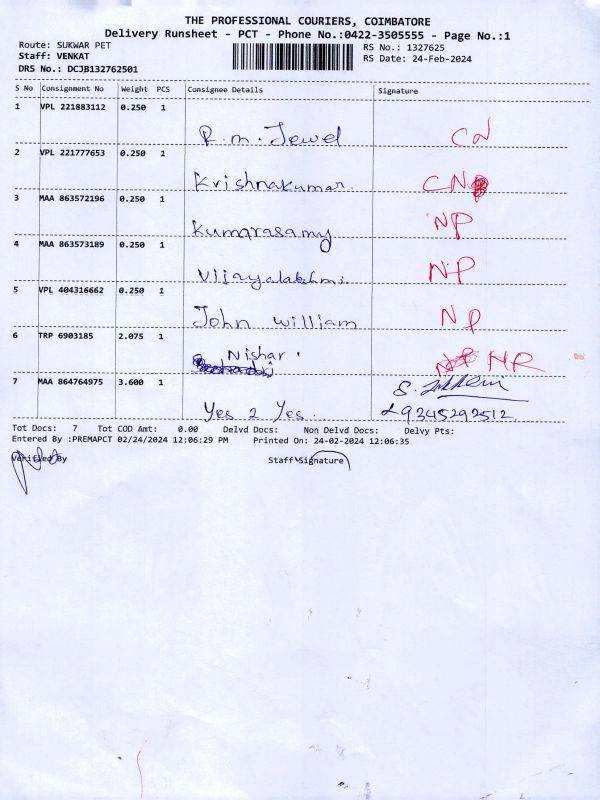 THE PROFESSIONAL COURIERS, COIMBATORE
Delivery Runsheet - PCT - Phone No.:0422-3505555 - Page No.:1
Route: SUKWAR PET RS No.: 1327625
Staff: VENKAT RS Date: 24-Feb-2024
DRS No.: DCJB132762501
S No Consignment No Weight PCS Consignee Details Signature
1 VPL 221883112 0.250 1
R.m. Jewel CN
2 VPL 221777653 0.250 1
Krishnakumar. CN
3 MAA 863572196 0.250 1
Kumarasamy NP
4 MAA 863573189 0.250 1
Vijayalakshmi NP
5 VPL 404316662 0.250 1
John William NP
6 TRP 6903185 2.075 1
Nishar NR
7 MAA 864764975 3.600 1
Yes 2 Yes. 9345292512
Tot Docs: 7 Tot COD Amt: 0.00 Delvd Docs: Non Delvd Docs: Delvy Pts:
Entered By :PREMAPCT 02/24/2024 12:06:29 PM Printed On: 24-02-2024 12:06:35
Verified By Staff Signature